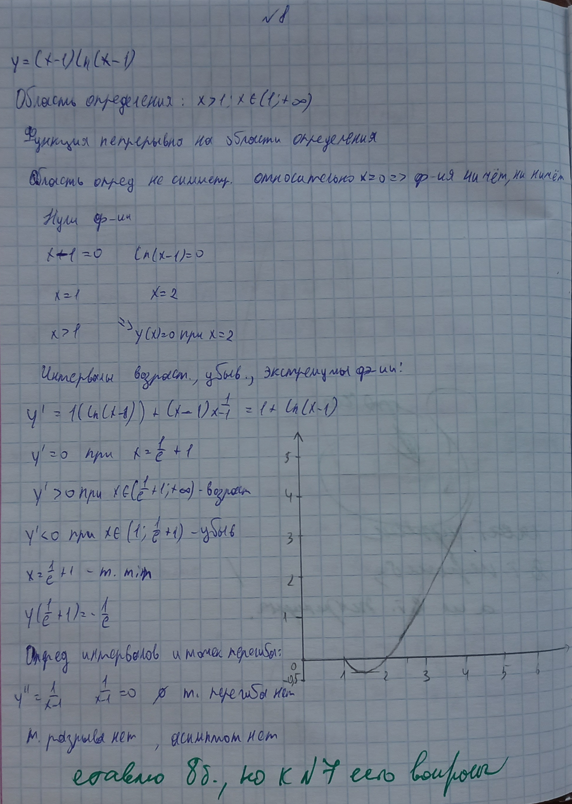 №8
y=(x-1)ln(x-1)
Область определения: x>1; x∈(1;+∞)
Функция непрерывна на области определения
Область опред не симметр. относительно x=0 => ф-ия ни чёт, ни нечёт
Нули ф-ии
x-1=0 ln(x-1)=0
x=1 x=2
x>1 => y(x)=0 при x=2
Интервалы возраст., убыв., экстремумы ф-ии:
y' = 1(ln(x-1)) + (x-1) 1/x-1 = 1+ln(x-1)
y'=0 при x=1/e+1
y'>0 при x∈(1/e+1;+∞) - возраст
y'<0 при x∈(1; 1/e+1) - убыв
x=1/e+1 - т. min
y(1/e+1)=-1/e
Опред интервалов и точек перегиба:
y''=1/x-1 1/x-1=0 ∅ т. перегиба нет
т. разрыва нет, асимптот нет
5
4
3
2
1
0
-0,5
1 2 3 4 5 6
ставлю 8б., но к №7 есть вопросы